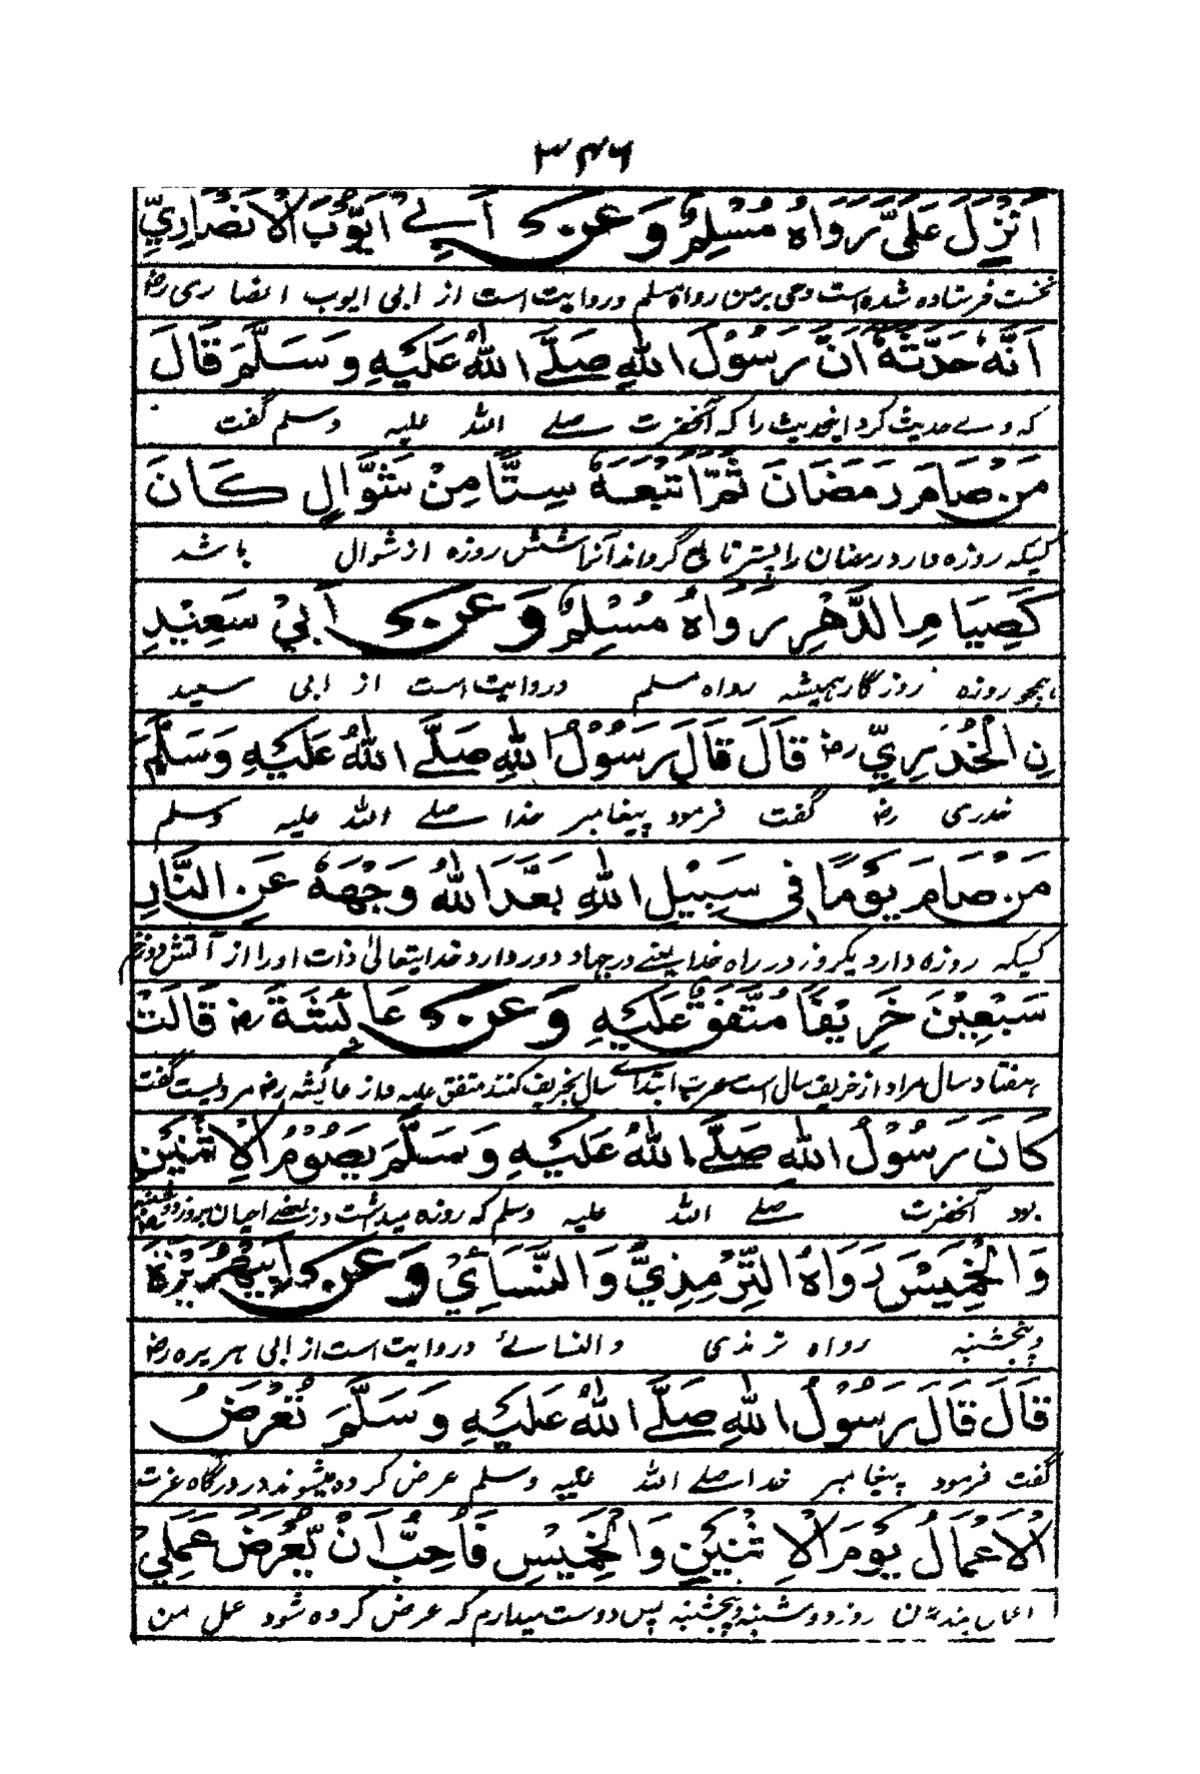 ۳۴۶
اُنْزِلَ عَلَیَّ رَوَاهُ مُسْلِمٌ وَعَنْ اَبِیْ اَیُّوْبَ الْاَنْصَارِیِّ
نخست فرستاده شده است وحی بر من رواه مسلم وروایت است از ابی ایوب انصاری رض
اَنَّهُ حَدَّثَهُ اَنَّ رَسُوْلَ اللهِ صَلَّے اللهُ عَلَیْهِ وَسَلَّمَ قَالَ
که وے حدیث کرد اینحدیث را که آنحضرت صلے الله علیه وسلم گفت
مَنْ صَامَ رَمَضَانَ ثُمَّ اَتْبَعَهُ سِتًّا مِنْ شَوَّالٍ کَانَ
کسیکه روزه دارد رمضان را پستر تابع گرداند آنرا شش روزه از شوال باشد
کَصِیَامِ الدَّهْرِ رَوَاهُ مُسْلِمٌ وَعَنْ اَبِیْ سَعِیْدِ
همچو روزه روزگار همیشه رواه مسلم وروایت است از ابی سعید
نِ الْخُدْرِیِّ رض قَالَ قَالَ رَسُوْلُ اللهِ صَلَّے اللهُ عَلَیْهِ وَسَلَّمَ
خدری رض گفت فرمود پیغامبر خدا صلے الله علیه وسلم
مَنْ صَامَ یَوْمًا فِی سَبِیْلِ اللهِ بَعَّدَ اللهُ وَجْهَهُ عَنِ النَّارِ
کسیکه روزه دارد یکروز در راه خدا یعنے در جهاد دور دارد خدایتعالیٰ ذات اورا از آتش دوزخ
سَبْعِیْنَ خَرِیْفًا مُتَّفَقٌ عَلَیْهِ وَعَنْ عَائِشَةَ رض قَالَتْ
هفتاد سال مراد از خریف سال است عرب ابتدائے سال بخریف کنند متفق علیه واز عائشه رض مرویست گفت
کَانَ رَسُوْلُ اللهِ صَلَّے اللهُ عَلَیْهِ وَسَلَّمَ یَصُوْمُ الْاِثْنَیْنِ
بود آنحضرت صلے الله علیه وسلم که روزه میداشت در بعضے احیان بروز دوشنبه
وَالْخَمِیْسَ رَوَاهُ التِّرْمِذِیُّ وَالنَّسَائِیْ وَعَنْ اَبِیْهُرَیْرَةَ
وپنجشنبه رواه ترمذی والنسائے وروایت است از ابی هریره رض
قَالَ قَالَ رَسُوْلُ اللهِ صَلَّے اللهُ عَلَیْهِ وَسَلَّمَ تُعْرَضُ
گفت فرمود پیغامبر خدا صلے الله علیه وسلم عرض کرده میشوند در درگاه عزت
الْاَعْمَالُ یَوْمَ الْاِثْنَیْنِ وَالْخَمِیْسِ فَاُحِبُّ اَنْ یُّعْرَضَ عَمَلِیْ
اعمال بندگان روز دوشنبه وپنجشنبه پس دوست میدارم که عرض کرده شود عمل من